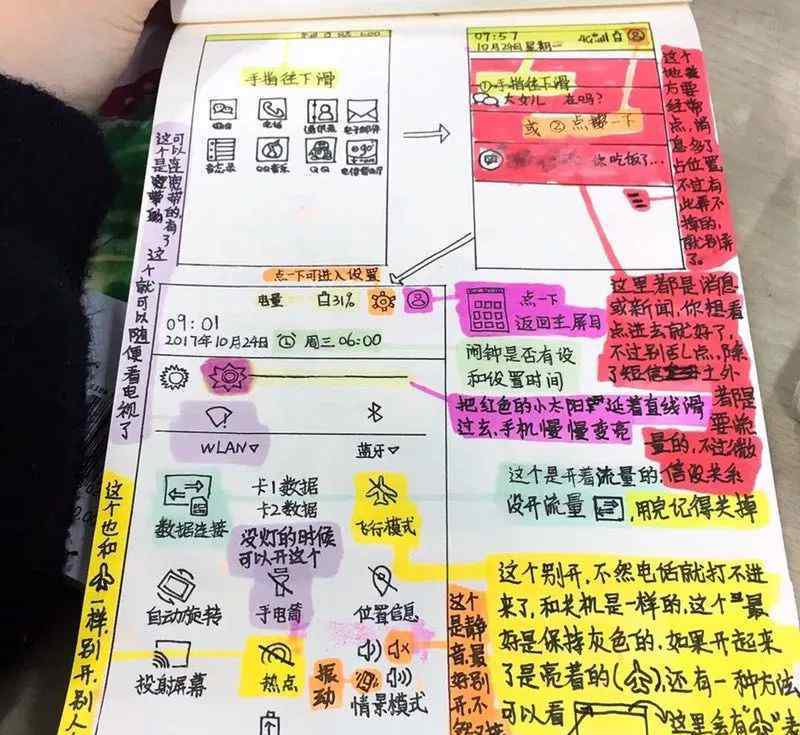 手指往下滑
微信
电话
通讯录
电子邮件
备忘录
QQ音乐
QQ
07:57
10月24日星期一
4G
①手指往下滑
大女儿 在吗?
或②点一下
你吃饭了…
这个
地方要
经常
点,消
息多了
占位置,
不过有
些弄不
掉的,
就别弄
了。
可以连宽带的,有了
这个是宽带
这个就可以随便看电视了
点一下可进入设置
电量 31%
09:01
2017年10月24日 周三 06:00
点一下
返回主屏目
闹钟是否有设
和设置时间
这里都是消息
或新闻,你想看
点进去就好了,
不过别乱点,除
了短信之外
都是
要流
量的,不过微
信没关系
把红色的小太阳延着直线滑
过去,手机慢慢变亮
WLAN
蓝牙
数据连接
卡1数据
卡2数据
飞行模式
这个是开着流量的,
没开流量
,用完记得关掉
没灯的时候
可以开这个
自动旋转
手电筒
位置信息
投射屏幕
热点
振动
情景模式
这个也和
一样,别开,别人
这个
是静
音,最
好别
开,不
这个别开,不然电话就打不进
来了,和关机是一样的,这个最
好是保持灰色的,如果开起来
了是亮着的( ),还有一种方法
可以看
这里